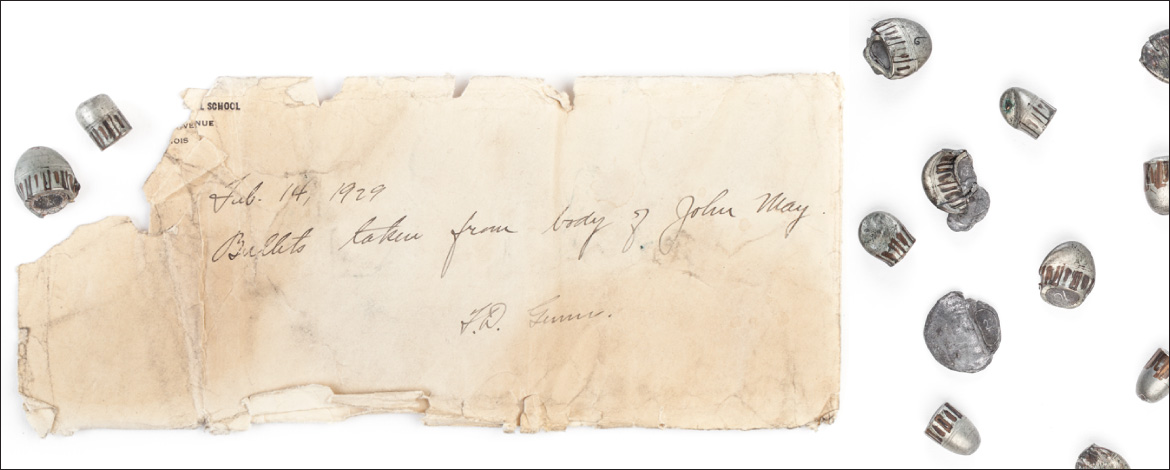 L SCHOOL
VENUE
OIS
Feb. 14, 1929
Bullets taken from body of John May.
F.D.
6